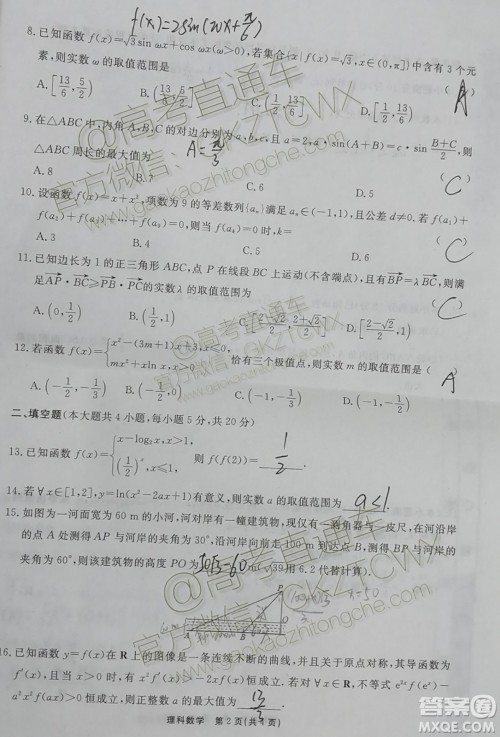 f(x)=2sin(wx+π/6)
8.已知函数 f(x)=√3sin ωx+cos ωx(ω>0),若集合{x|f(x)=√3,x∈(0,π]}中含有3个元
素,则实数 ω 的取值范围是 ( A
A.[13/6,5/2) B.(13/6,5/2] C.(1/2,13/6] D.[1/2,13/6)
9.在△ABC中,内角A,B,C的对边分别为a,b,c,且a=2,a·sin(A+B)=c·sin (B+C)/2,则
△ABC周长的最大值为 A=π/3 ( C
A.8 B.7 C.6 D.5
10.设函数 f(x)=x+x³,项数为9的等差数列{aₙ}满足aₙ∈(-1,1),且公差d≠0.若f(a₁)+
f(a₂)+f(a₃)+…+f(a₉)=0,则当f(aₖ)=0时,k= ( C
A.3 B.4 C.5 D.6
11.已知边长为1的正三角形ABC,点P在线段BC上运动(不含端点),且有BP=λBC,则满
足AP·BC≥PB·PC的实数λ的取值范围为 C
A.(0,1/2) B.(1/2,1) C.[(2-√2)/2,1) D.[(2-√2)/2,1)
12.若函数 f(x)={x²-(3m+1)x+3,x≤0, mx²+xln x,x>0 恰有三个极值点,则实数m的取值范围是( A
A.(-1/2,-1/3) B.(-1/2,0) C.(-1,-1/3) D.(-1,-1/2)
二、填空题(本大题共4小题,每小题5分,共20分)
13.已知函数 f(x)={x-log₂x,x>1, (1/2)ˣ,x≤1. 则f(f(2))= 1/2
14.若∀x∈[1,2],y=ln(x²-2ax+1)有意义,则实数a的取值范围为 a<1.
15.如图为一河面宽为60 m的小河,河对岸有一幢建筑物,现仅有一测角器与一皮尺,在河沿岸
的点A处测得AP与河岸的夹角为30°,沿河岸向前走100 m到达点B处测得BP与河岸的
夹角为60°,则该建筑物的高度PO约为 m(√39用6.2代替计算).
16.已知函数 y=f(x)在R上的图像是一条连续不断的曲线,并且其
f′(x),若∀x>0,都有xf′(x)>2f(x)恒成立.若使得不等式e²ˣf(eˣ)-
a²x²f(ax)>0恒成立,则正整数a的最大值为 13/3
理科数学 第2页(共 页)
@高考直通车
官方微信:GKZTCWX
www.gaokaozhitongche.com
答案圈
MXQE.COM